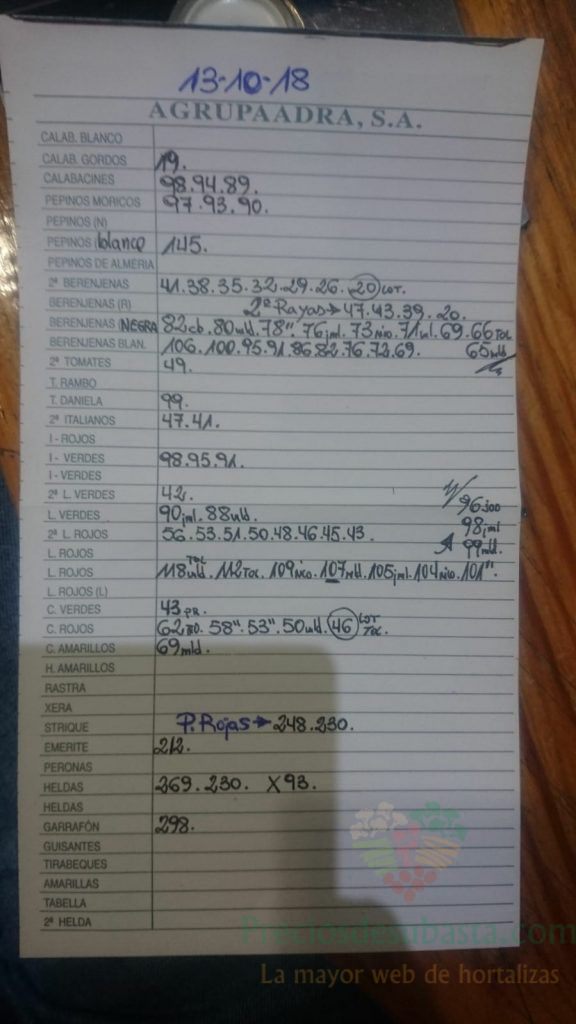 13-10-18
AGRUPAADRA, S.A.
CALAB. BLANCO
CALAB. GORDOS 19.
CALABACINES 98.94.89.
PEPINOS MORICOS 97.93.90.
PEPINOS (N)
PEPINOS (blanco 145.
PEPINOS DE ALMERIA
2ª BERENJENAS 41.38.35.32.29.26.20 LOT.
BERENJENAS (R) 2ª Rayas→47.43.39.20.
BERENJENAS (NEGRA 82cb.80uld.78".76jml.73nio.71ul.69.66TOL
BERENJENAS BLAN. 106.100.95.91.86.82.76.72.69. 65mld
2ª TOMATES 49.
T. RAMBO
T. DANIELA 99.
2ª ITALIANOS 47.41.
I - ROJOS
I - VERDES 98.95.91.
I - VERDES
2ª L. VERDES 42.
L. VERDES 90jml.88uld.
96
2ª L. ROJOS 56.53.51.50.48.46.45.43. 98jml
L. ROJOS 99mld.
L. ROJOS 118uld.TOL 112TOL.109nco.107mld.105jml.104nco.101".
L. ROJOS (L)
C. VERDES 43PR.
C. ROJOS 62.58".53".50uld.46 LOT TOL
C. AMARILLOS 69mld.
H. AMARILLOS
RASTRA
XERA
STRIQUE P. Rojas→248.230.
EMERITE 212.
PERONAS
HELDAS 269.230. X93.
HELDAS
GARRAFÓN 298.
GUISANTES
TIRABEQUES
AMARILLAS
TABELLA
2ª HELDA
Preciosdesubasta.com
La mayor web de hortalizas